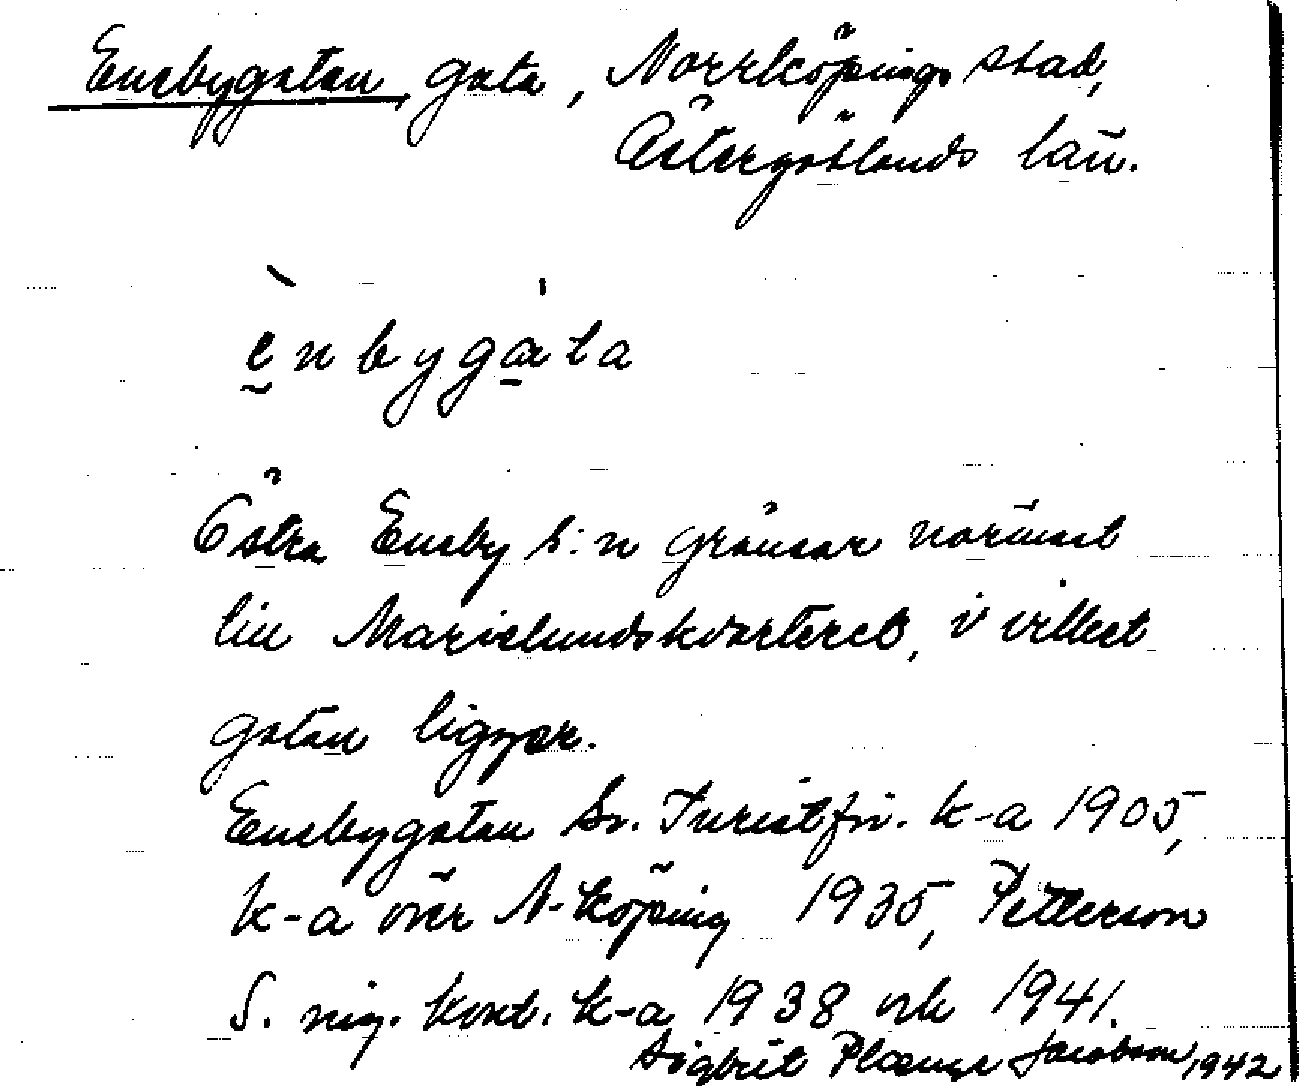 Enebygatan, gata, Norrköpings stad,
Östergötlands län.
enbygata
Östra Eneby s:n gränsar närmast
till Marielundskvarteret, i vilket
gatan ligger.
Enebygatan Sv. Turistför. k-a 1905,
k-a över N-köping 1935, Petterson
S. ing. kont. k-a 1938 och 1941.
Sigbrit Plænge Jacobson, 1942